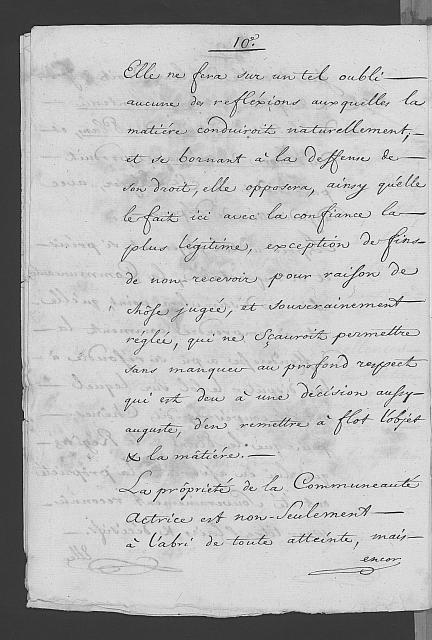 10.e
Elle ne fera sur un tel oubli —
aucune des refléxions auxquelles la
matiére conduiroit naturellement, —
et se bornant à la deffense de —
son droit, elle opposera, ainsy qu'elle
le fait ici avec la confiance la —
plus légitime, exception de fins —
de non-recevoir pour raison de
chôse jugée, et souverainement
réglée, qui ne sçauroit permettre
sans manquer au profond respect
qui est deu à une décision aussy
auguste, d'en remettre à flot l'objèt
& la mâtiére. —
La propriété de la Communeauté
Actrice est non-Seulement —
à l'abri de toute atteinte, mais —
encor